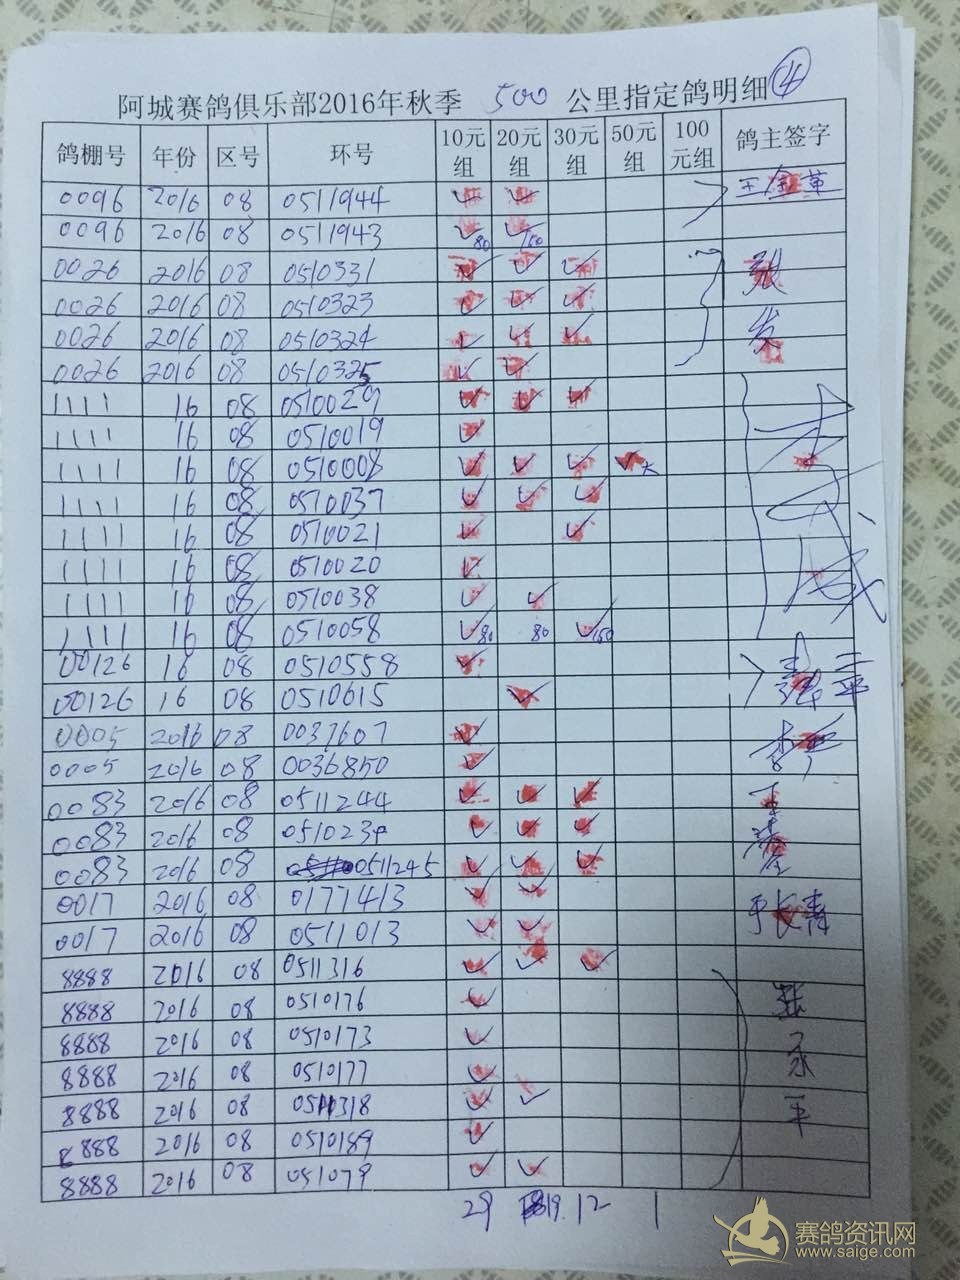 阿城赛鸽俱乐部2016年秋季 500 公里指定鸽明细 ④
鸽棚号 年份 区号 环号 10元组 20元组 30元组 50元组 100元组 鸽主签字
0096 2016 08 0511944 ✓ ✓ 王金革
0096 2016 08 0511943 ✓80 ✓150
0026 2016 08 0510331 ✓ ✓ ✓ 张
0026 2016 08 0510323 ✓ ✓ ✓
0026 2016 08 0510324 ✓ ✓ ✓ 发
0026 2016 08 0510325 ✓ ✓
1111 16 08 0510029 ✓ ✓ ✓
1111 16 08 0510019 ✓
1111 16 08 0510008 ✓ ✓ ✓ ✓大
1111 16 08 0510037 ✓ ✓ ✓
1111 16 08 0510021 ✓ ✓
1111 16 08 0510020 ✓
1111 16 08 0510038 ✓ ✓
1111 16 08 0510058 ✓80 80 ✓150
00126 16 08 0510558 ✓
00126 16 08 0510615 ✓
0005 2016 08 0037607 ✓
0005 2016 08 0036850 ✓
0083 2016 08 0511244 ✓ ✓ ✓
0083 2016 08 051023 ✓ ✓ ✓
0083 2016 08 0511245 ✓ ✓ ✓
0017 2016 08 0177413 ✓ ✓ 于长青
0017 2016 08 0511013 ✓ ✓
8888 2016 08 0511316 ✓ ✓ ✓
8888 2016 08 0510176 ✓ 张
8888 2016 08 0510173 ✓ 永
8888 2016 08 0510177 ✓
8888 2016 08 0511318 ✓ ✓ 平
8888 2016 08 0510189 ✓
8888 2016 08 051079 ✓ ✓
29 19. 12 1
赛鸽资讯网
www.saige.com